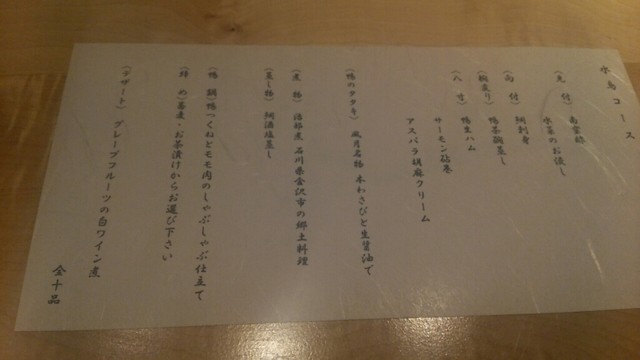 水鳥コース
(先　付) 南蛮娘
水菜のお浸し
(向　付) 桐刺身
(椀変り) 鴨茶碗蒸し
(八　寸) 鴨生ハム
サーモン砧巻
アスパラ胡麻クリーム
(鴨のタタキ) 成月名物 本わさびと生醤油で
(煮　物) 治部煮 石川県金沢市の郷土料理
(蒸し物) 蛤酒塩蒸し
(鴨　鍋) 鴨つくねとモモ肉のしゃぶしゃぶ仕立て
(締　め) 蕎麦・お茶漬けからお選び下さい
(デザート) グレープフルーツの白ワイン煮
全十品